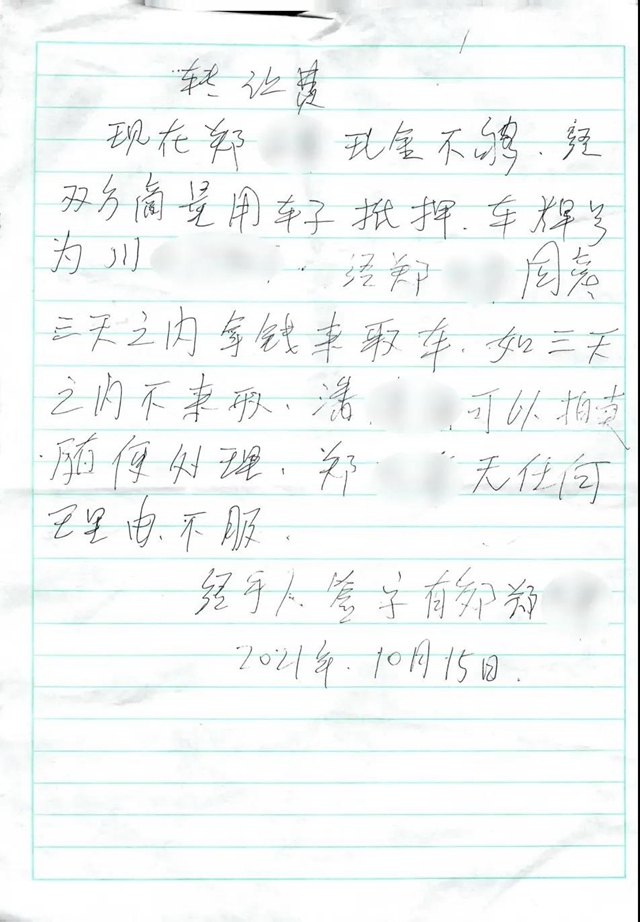 转让费
现在郑 现金不够.经
双方商量用车子抵押.车牌号
为川 经郑 同意
三天之内拿钱来取车.如三天
之内不来取、潘 可以拍卖
随便处理、郑 无任何
理由.不服.
经手人签字有效郑
2021年.10月15日.